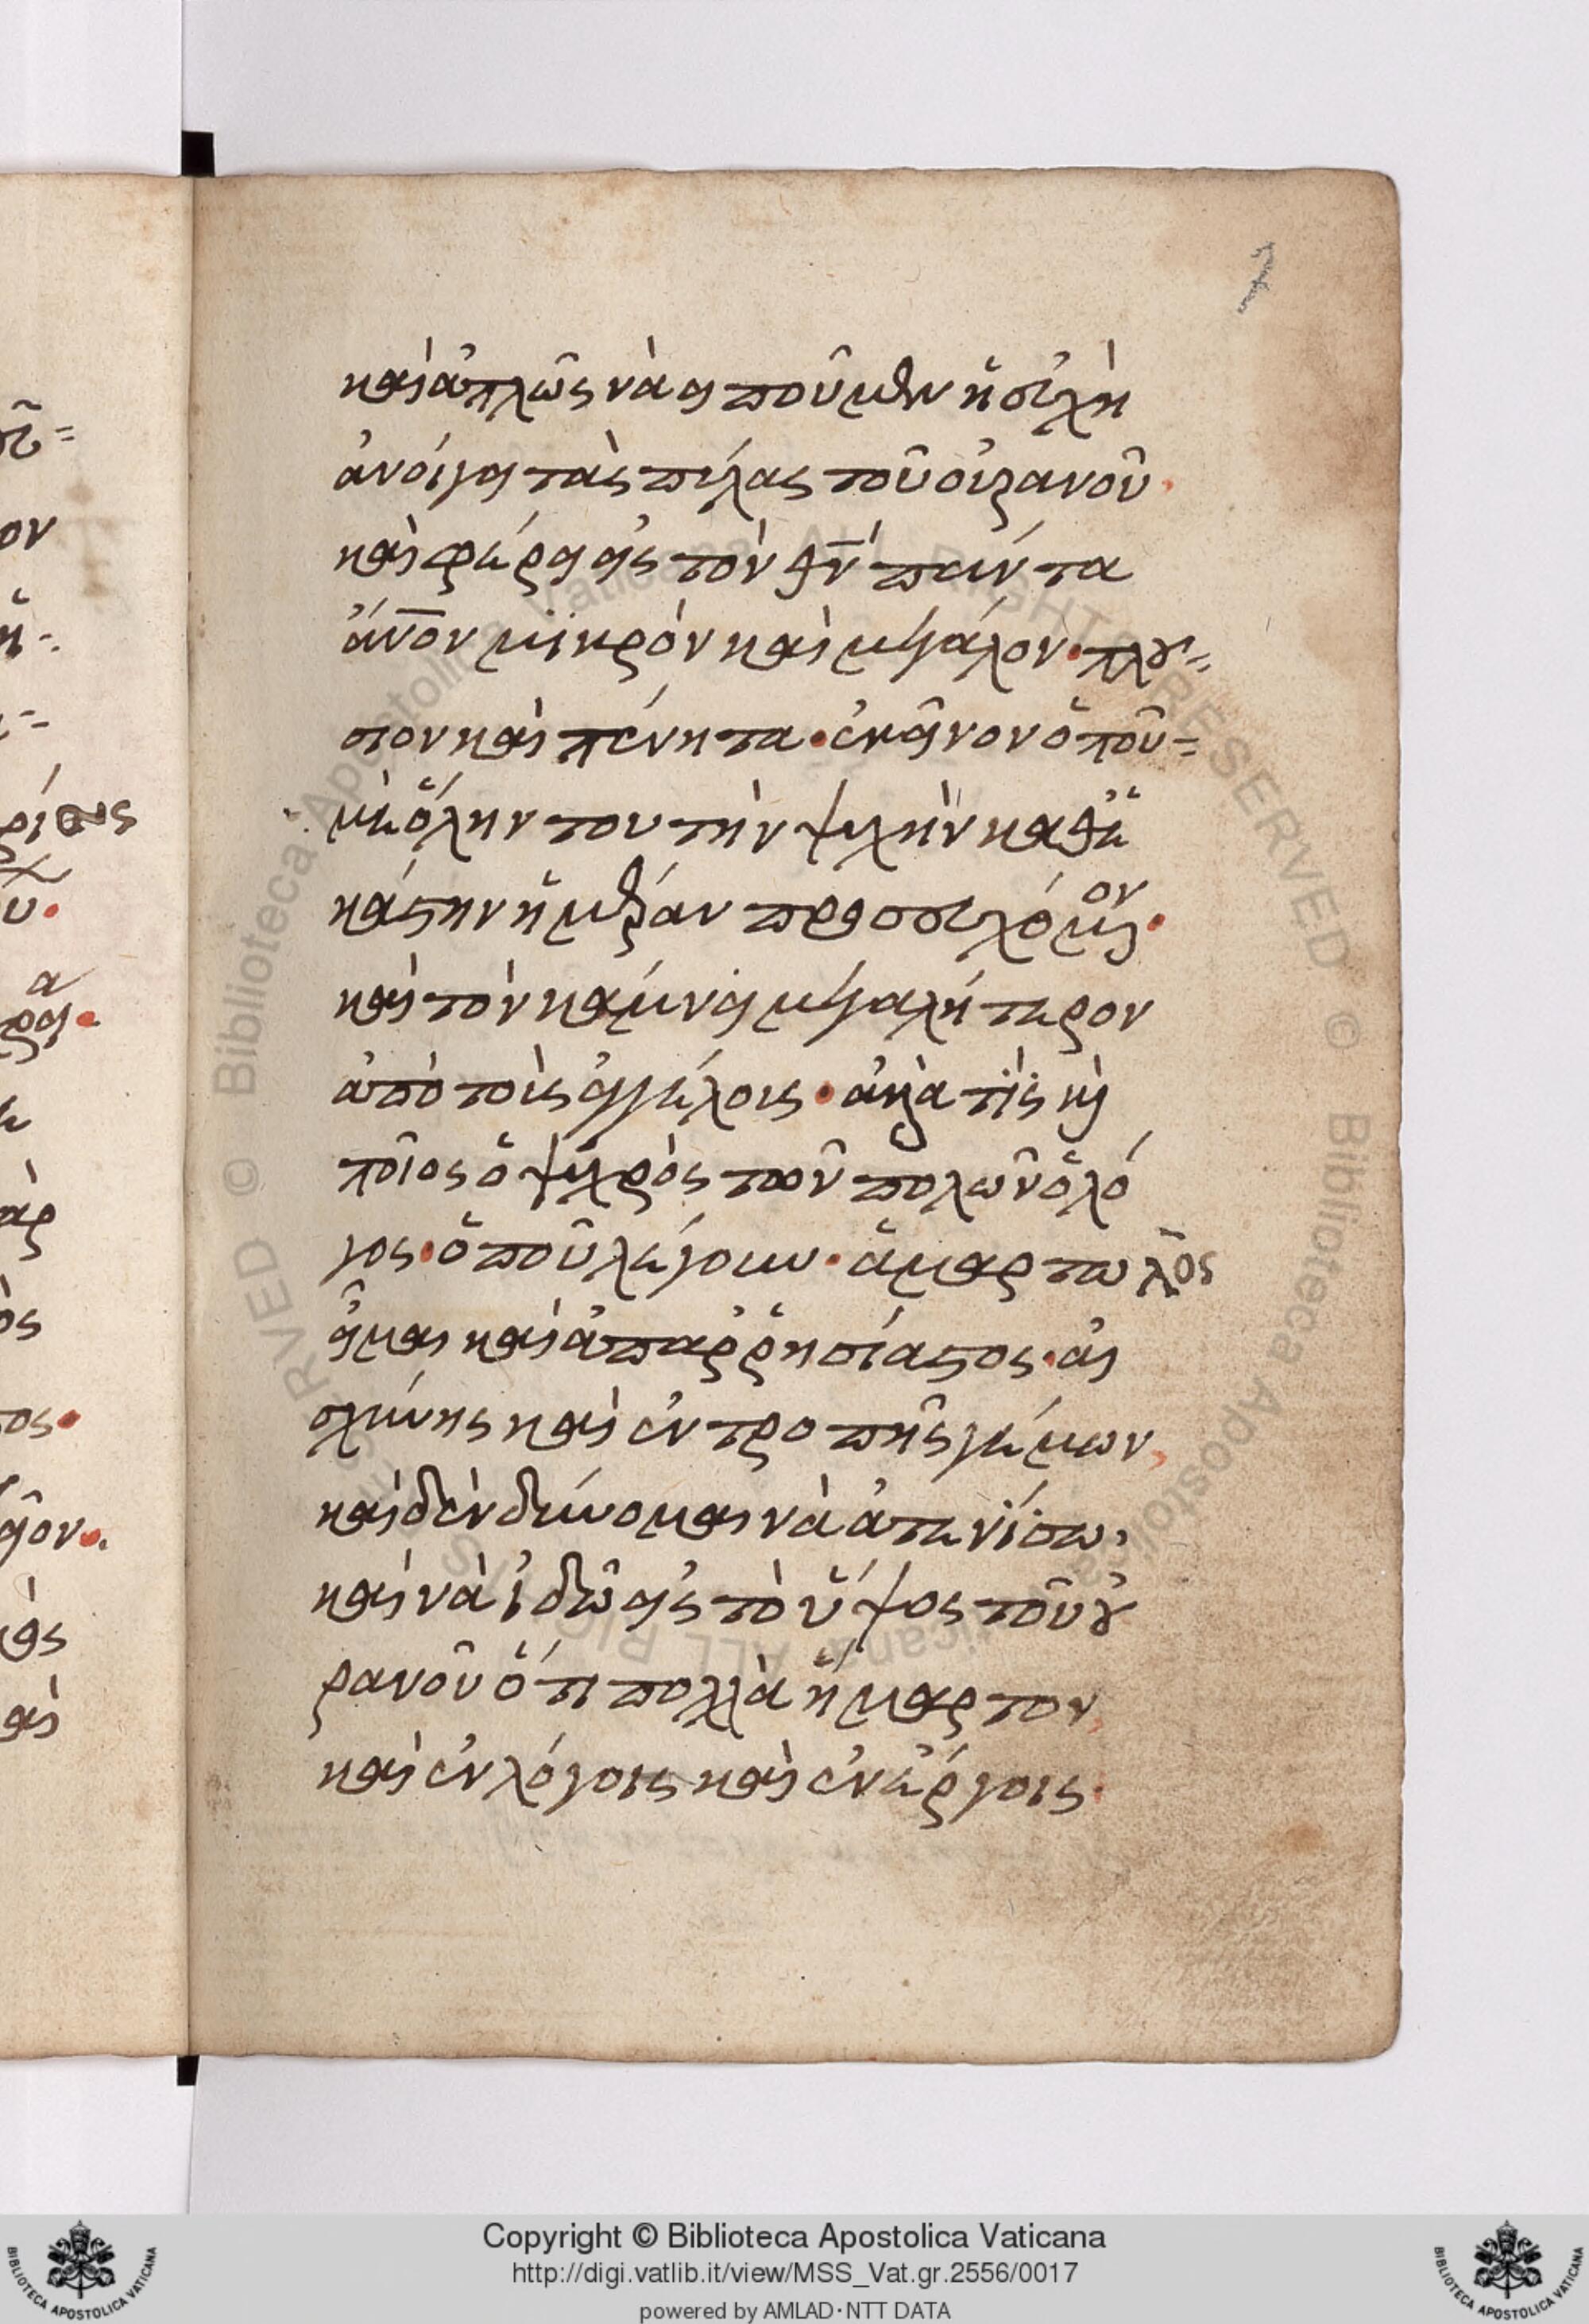 7
καὶ ἁπλῶς νὰ εἰποῦμεν ἡ εὐχὴ
ἀνοίγει τὰς πύλας τοῦ οὐρανοῦ
καὶ φέρει εἰς τὸν θν̅ πάντα
ἄνον μϊκρὸν καὶ μεγάλον· πλου=
σιον καὶ πένητα· ἐκεῖνον ὁποῦ=
μὲ ὅλην του τὴν ψυχὴν καθἑ
κάστην ἡμέραν προσευχόμενον·
καὶ τὸν κάμνει μεγαλήτερον
ἀπὸ τοὺς ἀγγέλους· ἀλλὰ τίς κὶ
ποῖος ὁ ψυχρὸς τῶν πολῶν ὁ λό
γος· ὁποῦ λέγουν· ἁμαρτωλὸς
εἶμαι καὶ ἀπαῤῥησίαστος· αἰ
σχύνης καὶ ἐντροπῆς γέμων,
καὶ δὲν δύνομαι νὰ ἀτενίσω,
καὶ νὰ ἰδῶ εἰς τὸ ὕψος τοῦ οὐ
ρανοῦ ὅτι πολλὰ ἥμαρτον,
καὶ ἐν λόγοις καὶ ἐν ἔργοις·
Copyright © Biblioteca Apostolica Vaticana
http://digi.vatlib.it/view/MSS_Vat.gr.2556/0017
powered by AMLAD·NTT DATA